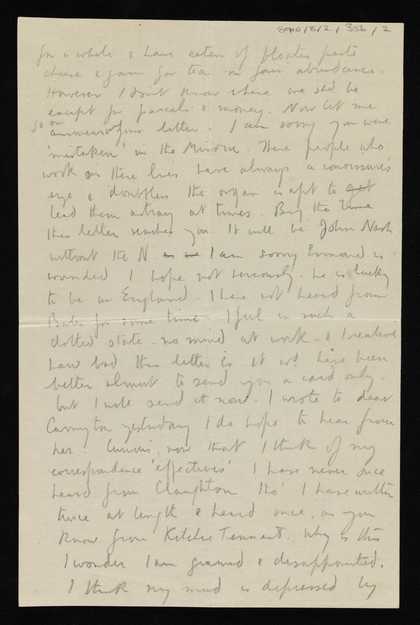 for a whole & have eaten of
cheese & jam for tea in fair abundance.
However I don't know where we shd be
except for parcels & money. Now let me
go on answering your letter. I am sorry you were
'mistaken' in the Mirror. These people who
work on these lines have always a connoisseur's
eye & doubtless the organ is apt to get
lead them astray at times. By the time
this letter reaches you it will be John Nash
without the N. I am sorry is
wounded I hope not seriously. he is lucky
to be in England. I have not heard from
for some time. I feel in such a
dotted state - no mind at work - &
how bad this letter is it wd have been
better almost to send you a card only.
but I will send it now. I wrote to dear
Carrington yesterday I do hope to hear from
her. Curious, now that I think of my
correspondence 'effectives' I have never once
heard from Claughton tho' I have written
twice at length & heard once, as you
know from Tennant. Why is this
I wonder I am grieved & disappointed.
I think my mind is depressed by